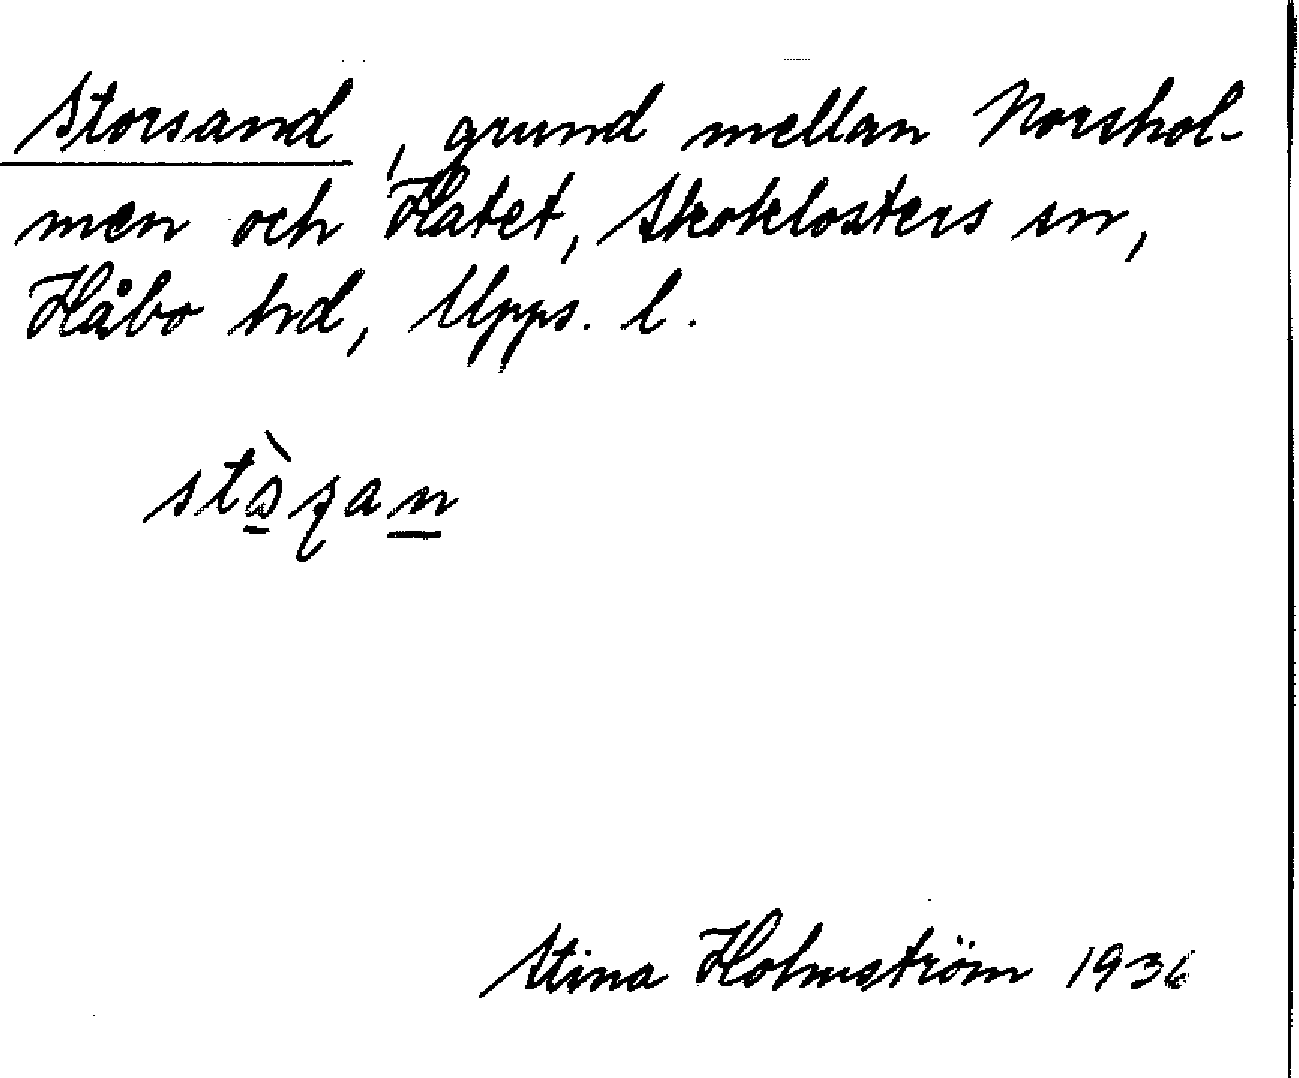 Storsand, grund mellan Norshol-
men och Katet, Skoklosters sn,
Håbo hrd, Upps. l.
Stina Holmström 1936